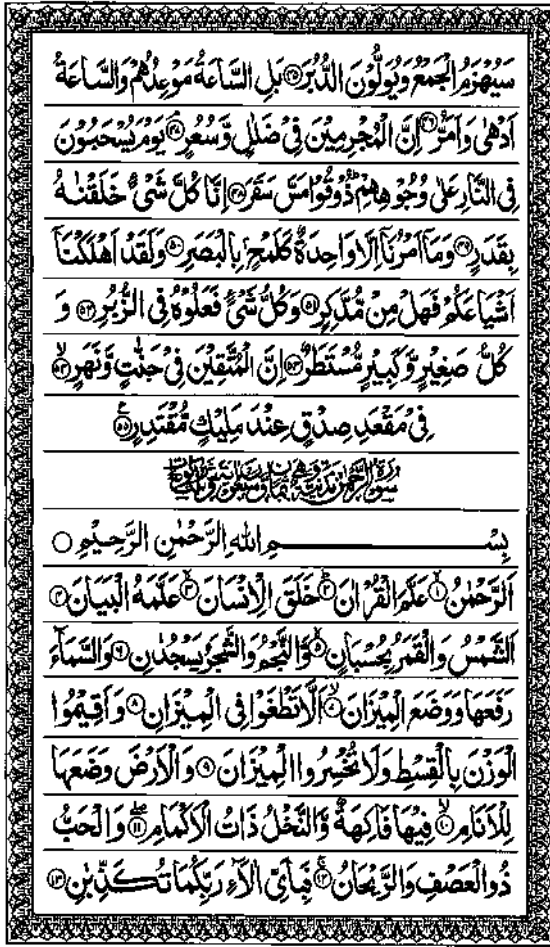 سَيُهْزَمُ الْجَمْعُ وَيُوَلُّوْنَ الدُّبُرَ ۝۴۵ بَلِ السَّاعَةُ مَوْعِدُهُمْ وَالسَّاعَةُ
اَدْهٰى وَاَمَرُّ ۝۴۶ اِنَّ الْمُجْرِمِيْنَ فِيْ ضَلٰلٍ وَّسُعُرٍ ۝۴۷ يَوْمَ يُسْحَبُوْنَ
فِى النَّارِ عَلٰى وُجُوْهِهِمْ ذُوْقُوْا مَسَّ سَقَرَ ۝۴۸ اِنَّا كُلَّ شَىْءٍ خَلَقْنٰهُ
بِقَدَرٍ ۝۴۹ وَمَاۤ اَمْرُنَاۤ اِلَّا وَاحِدَةٌ كَلَمْحٍۭ بِالْبَصَرِ ۝۵۰ وَلَقَدْ اَهْلَكْنَاۤ
اَشْيَاعَكُمْ فَهَلْ مِنْ مُّدَّكِرٍ ۝۵۱ وَكُلُّ شَىْءٍ فَعَلُوْهُ فِى الزُّبُرِ ۝۵۲ وَ
كُلُّ صَغِيْرٍ وَّكَبِيْرٍ مُّسْتَطَرٌ ۝۵۳ اِنَّ الْمُتَّقِيْنَ فِيْ جَنّٰتٍ وَّنَهَرٍ ۝۵۴
فِيْ مَقْعَدِ صِدْقٍ عِنْدَ مَلِيْكٍ مُّقْتَدِرٍ ۝۵۵
سُوْرَةُ الرَّحْمٰنِ مَدَنِيَّةٌ وَّهِىَ ثَمَانٌ وَّسَبْعُوْنَ اٰيَةً
بِسْمِ اللّٰهِ الرَّحْمٰنِ الرَّحِيْمِ ۝
اَلرَّحْمٰنُ ۝۱ عَلَّمَ الْقُرْاٰنَ ۝۲ خَلَقَ الْاِنْسَانَ ۝۳ عَلَّمَهُ الْبَيَانَ ۝۴
اَلشَّمْسُ وَالْقَمَرُ بِحُسْبَانٍ ۝۵ وَّالنَّجْمُ وَالشَّجَرُ يَسْجُدٰنِ ۝۶ وَالسَّمَآءَ
رَفَعَهَا وَوَضَعَ الْمِيْزَانَ ۝۷ اَلَّا تَطْغَوْا فِى الْمِيْزَانِ ۝۸ وَاَقِيْمُوا
الْوَزْنَ بِالْقِسْطِ وَلَا تُخْسِرُوا الْمِيْزَانَ ۝۹ وَالْاَرْضَ وَضَعَهَا
لِلْاَنَامِ ۝۱۰ فِيْهَا فَاكِهَةٌ وَّالنَّخْلُ ذَاتُ الْاَكْمَامِ ۝۱۱ وَالْحَبُّ
ذُو الْعَصْفِ وَالرَّيْحَانُ ۝۱۲ فَبِاَىِّ اٰلَآءِ رَبِّكُمَا تُكَذِّبٰنِ ۝۱۳